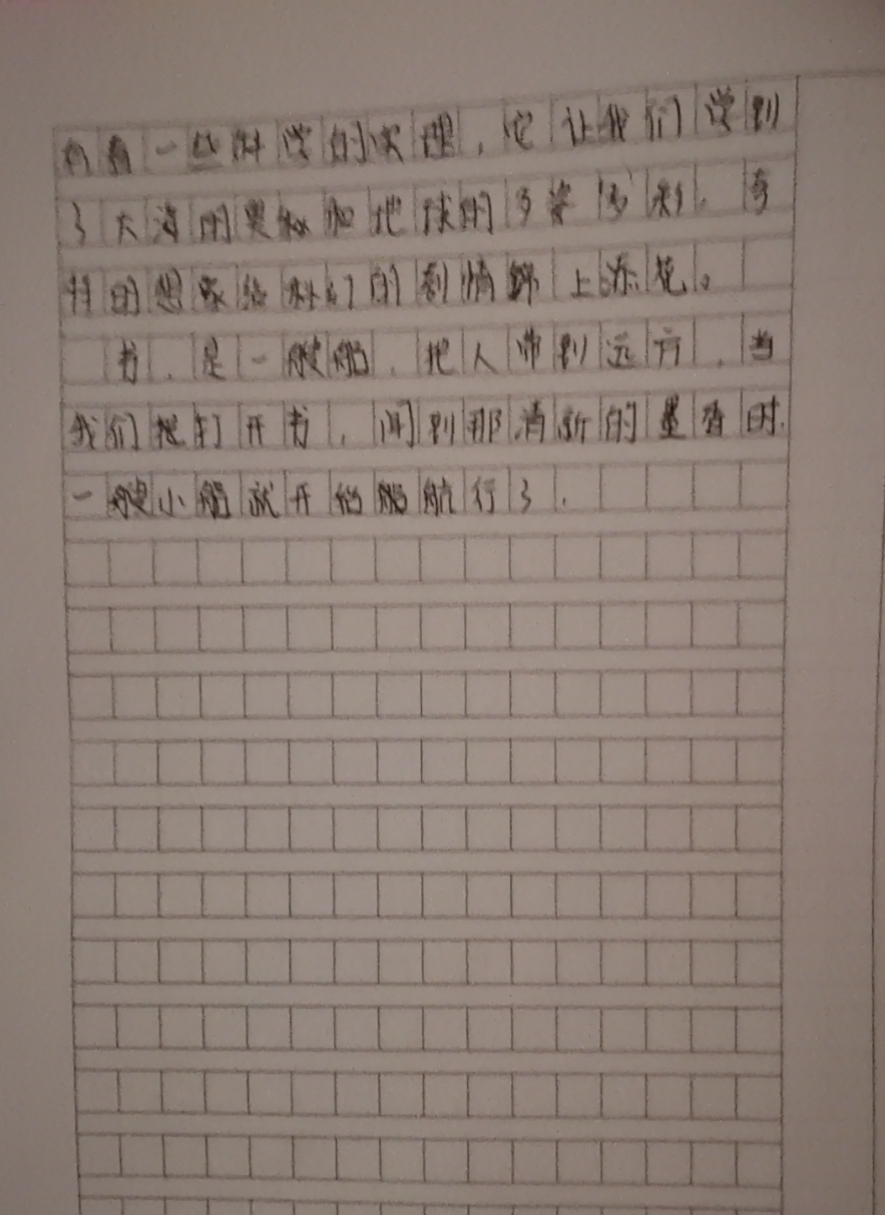 有着一些科学的实理，它让我们学到
了大海的奥秘和地球的多姿多彩。奇
特的想象给科幻的剧情锦上添花。
书，是一艘船，把人带到远方，当
我们打开书，闻到那清新的墨香时，
一艘小船就开始航行了。